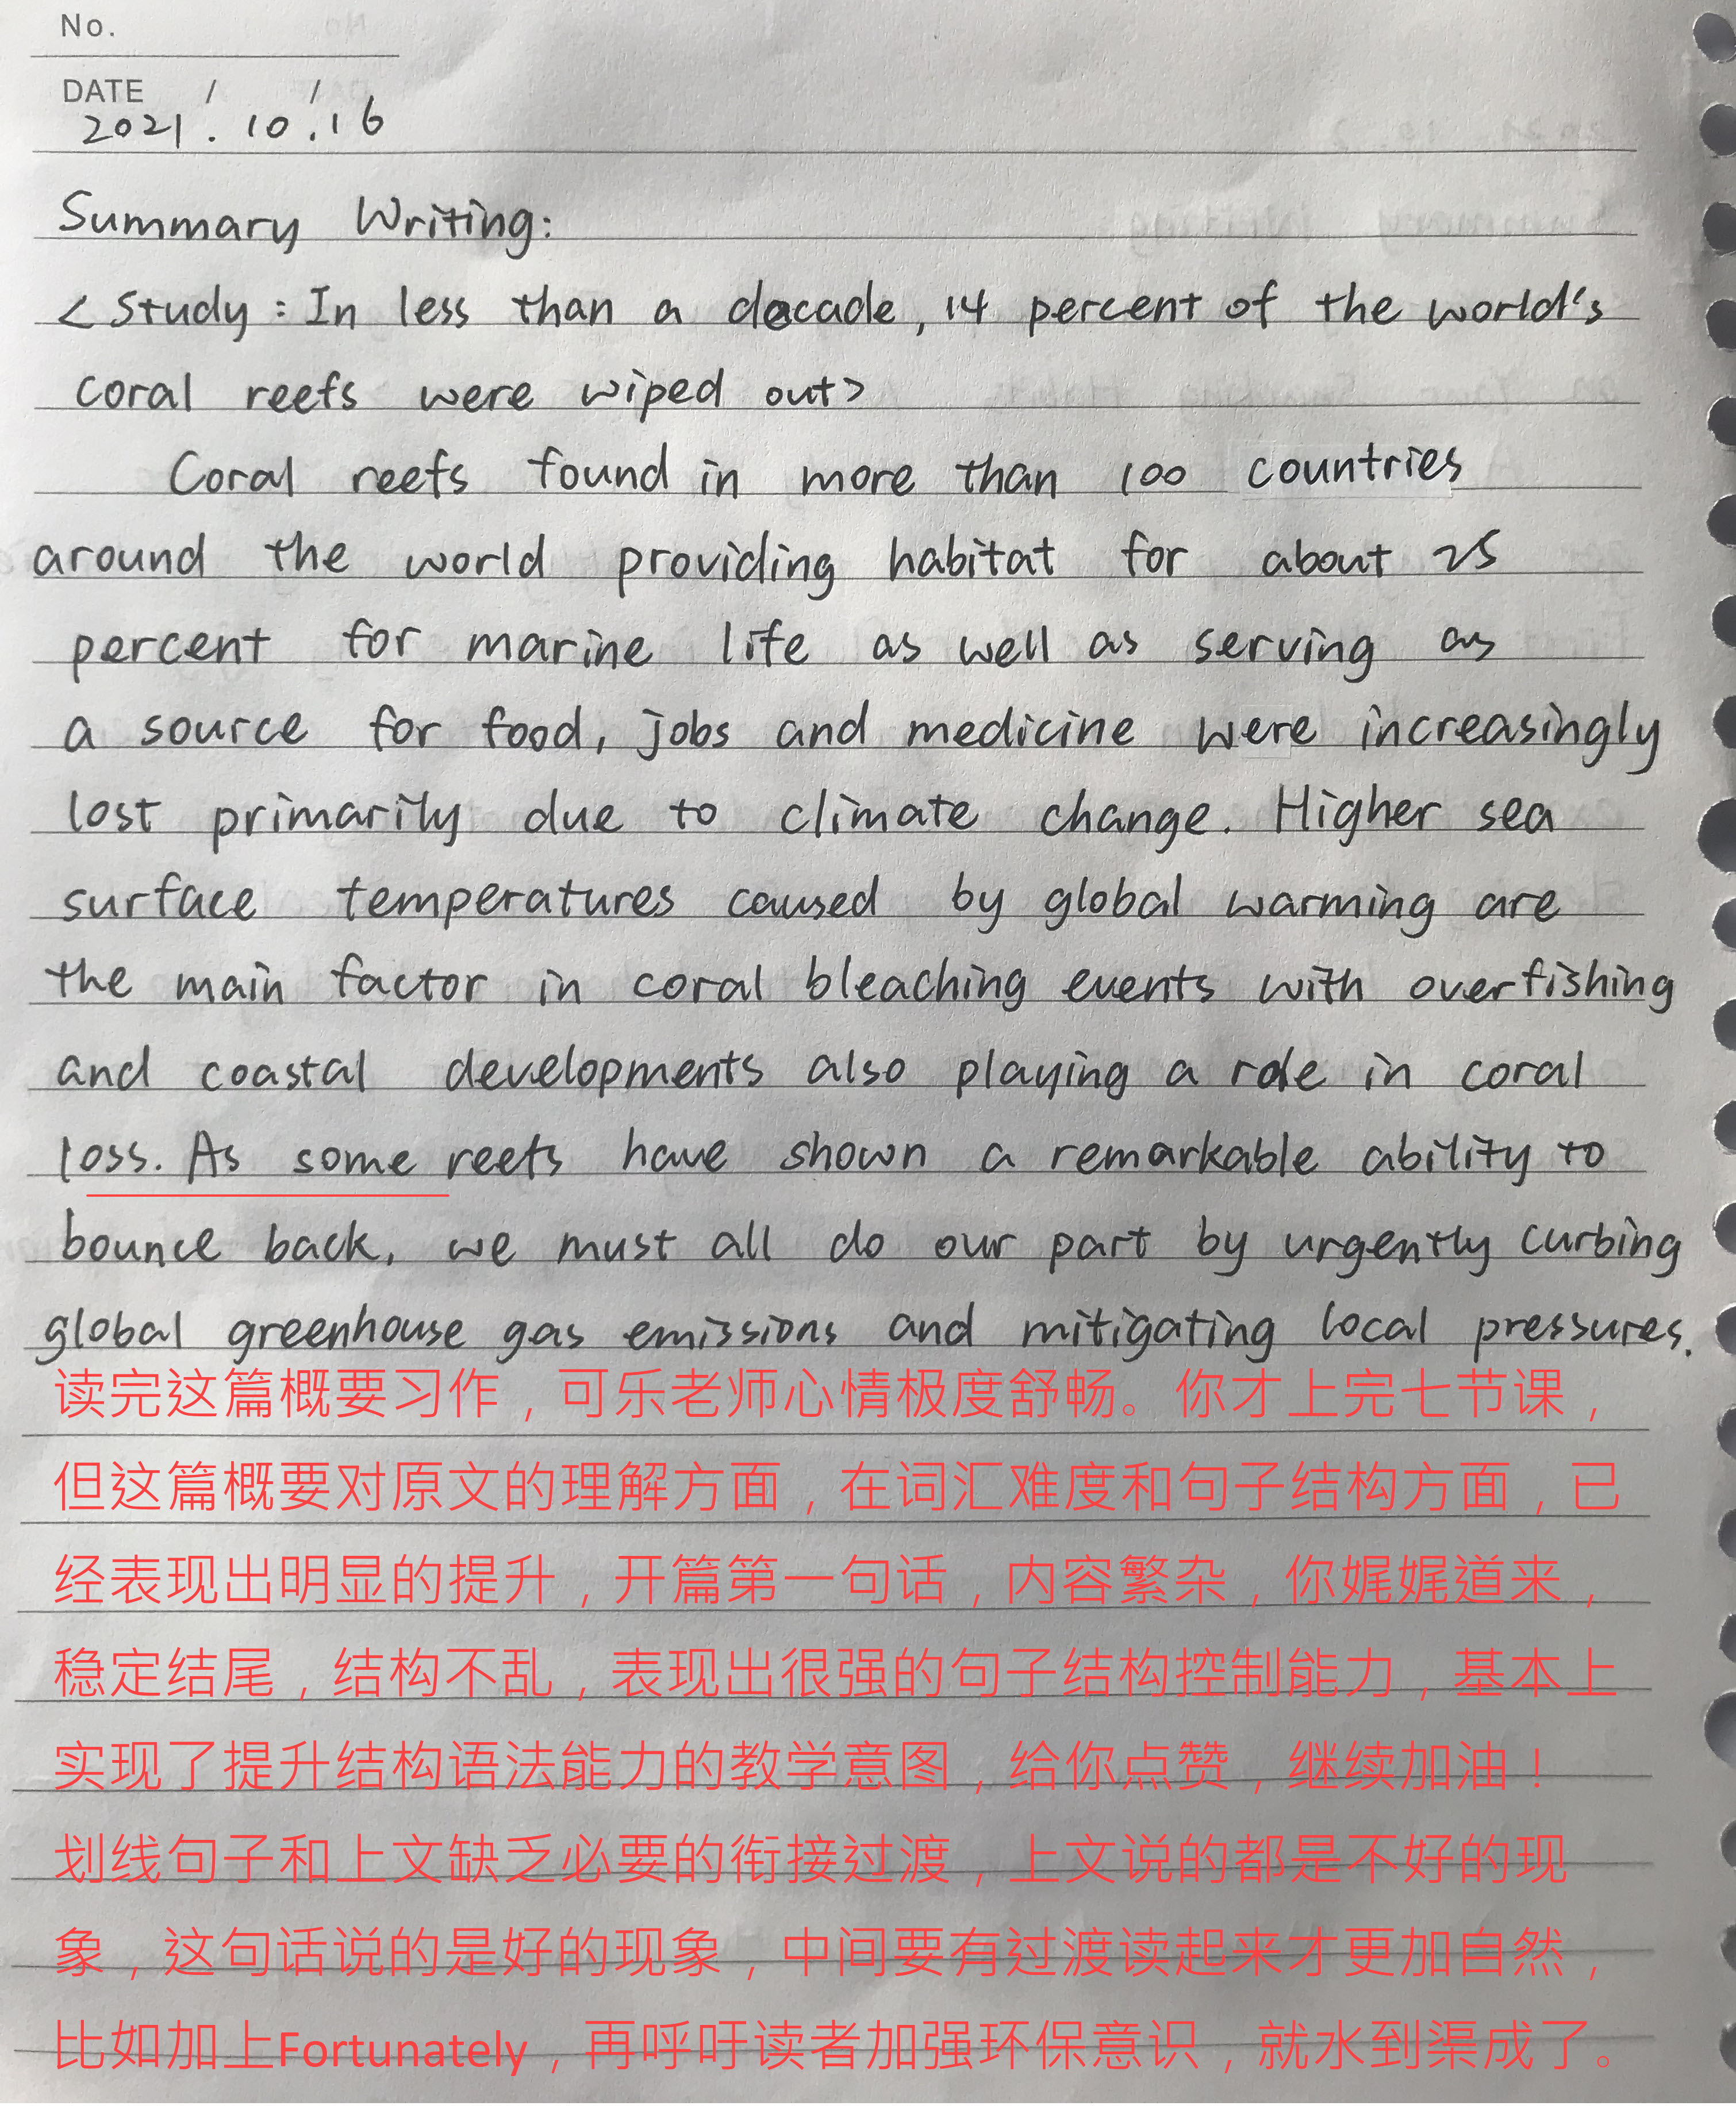 No.
DATE / /
2021.10.16
Summary Writing:
<Study: In less than a decade, 14 percent of the world's
coral reefs were wiped out>
Coral reefs found in more than 100 countries
around the world providing habitat for about 25
percent for marine life as well as serving as
a source for food, jobs and medicine were increasingly
lost primarily due to climate change. Higher sea
surface temperatures caused by global warming are
the main factor in coral bleaching events with overfishing
and coastal developments also playing a role in coral
loss. As some reefs have shown a remarkable ability to
bounce back, we must all do our part by urgently curbing
global greenhouse gas emissions and mitigating local pressures.
读完这篇概要习作，可乐老师心情极度舒畅。你才上完七节课，
但这篇概要对原文的理解方面，在词汇难度和句子结构方面，已
经表现出明显的提升，开篇第一句话，内容繁杂，你娓娓道来，
稳定结尾，结构不乱，表现出很强的句子结构控制能力，基本上
实现了提升结构语法能力的教学意图，给你点赞，继续加油！
划线句子和上文缺乏必要的衔接过渡，上文说的都是不好的现
象，这句话说的是好的现象，中间要有过渡读起来才更加自然，
比如加上Fortunately，再呼吁读者加强环保意识，就水到渠成了。